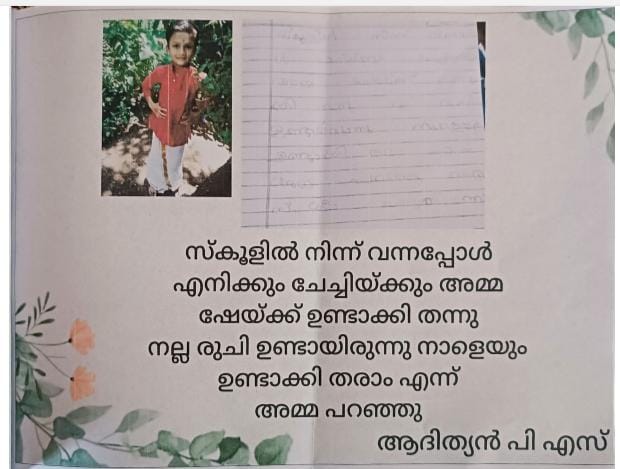 സ്കൂളിൽ നിന്ന് വന്നപ്പോൾ
എനിക്കും ചേച്ചിയ്ക്കും അമ്മ
ഷേയ്ക്ക് ഉണ്ടാക്കി തന്നു
നല്ല രുചി ഉണ്ടായിരുന്നു നാളെയും
ഉണ്ടാക്കി തരാം എന്ന്
അമ്മ പറഞ്ഞു
ആദിത്യൻ പി എസ്